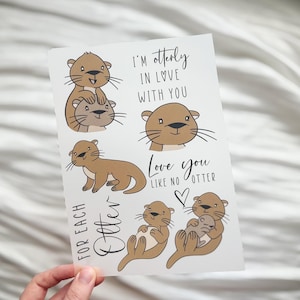 I'm otterly
IN LOVE
WITH YOU
Love you
LIKE NO OTTER
FOR EACH
Otter